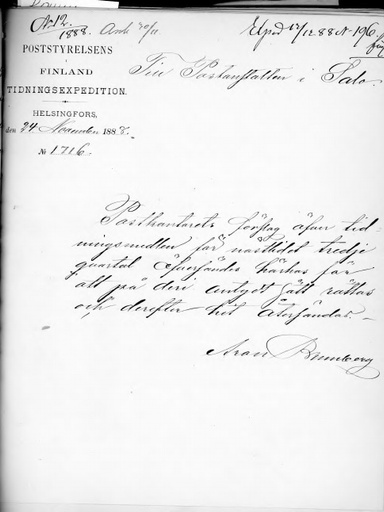 No 12.
1888. Ank 30/11
Exped 13/12 88 No 196.
POSTSTYRELSENS
I
FINLAND
TIDNINGSEXPEDITION.
HELSINGFORS,
den 24 November 1888.
No 1716.
Till Postanstalten i Salo.
Postkontorets förslag öfver tid-
ningsmedlen för nästlidet tredje
quartal öfversändes härhos för
att på deri antydt sätt rättas
och derefter hit återsändas.